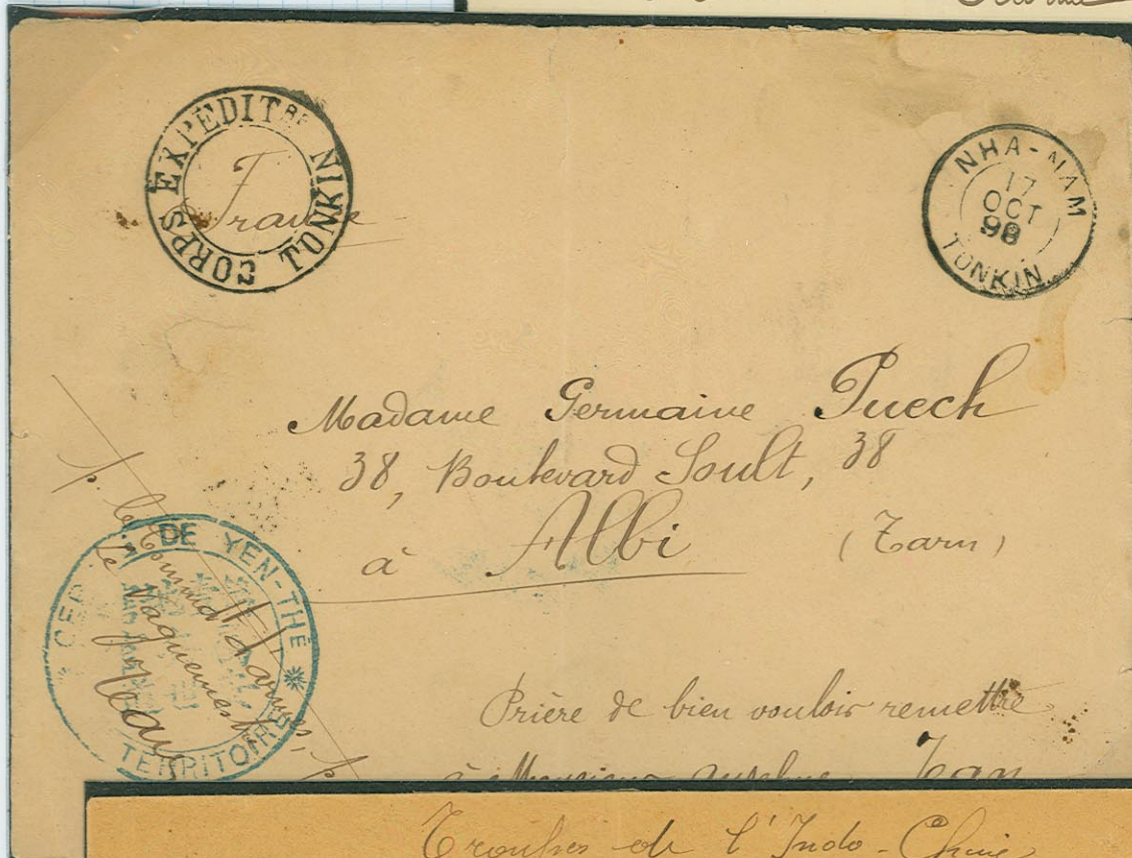 CORPS EXPÉDITRE TONKIN
France
NHA-NAM
17
OCT
98
TONKIN
Madame Germaine Puech
38, Boulevard Soult, 38
à Albi (Tarn)
DE YEN-THÉ
TERRITOIRE
p. le Command d'armes,
Le Vaguemestre
Prière de bien vouloir remettre
à Monsieur Jean
Troupes de l'Indo-Chine